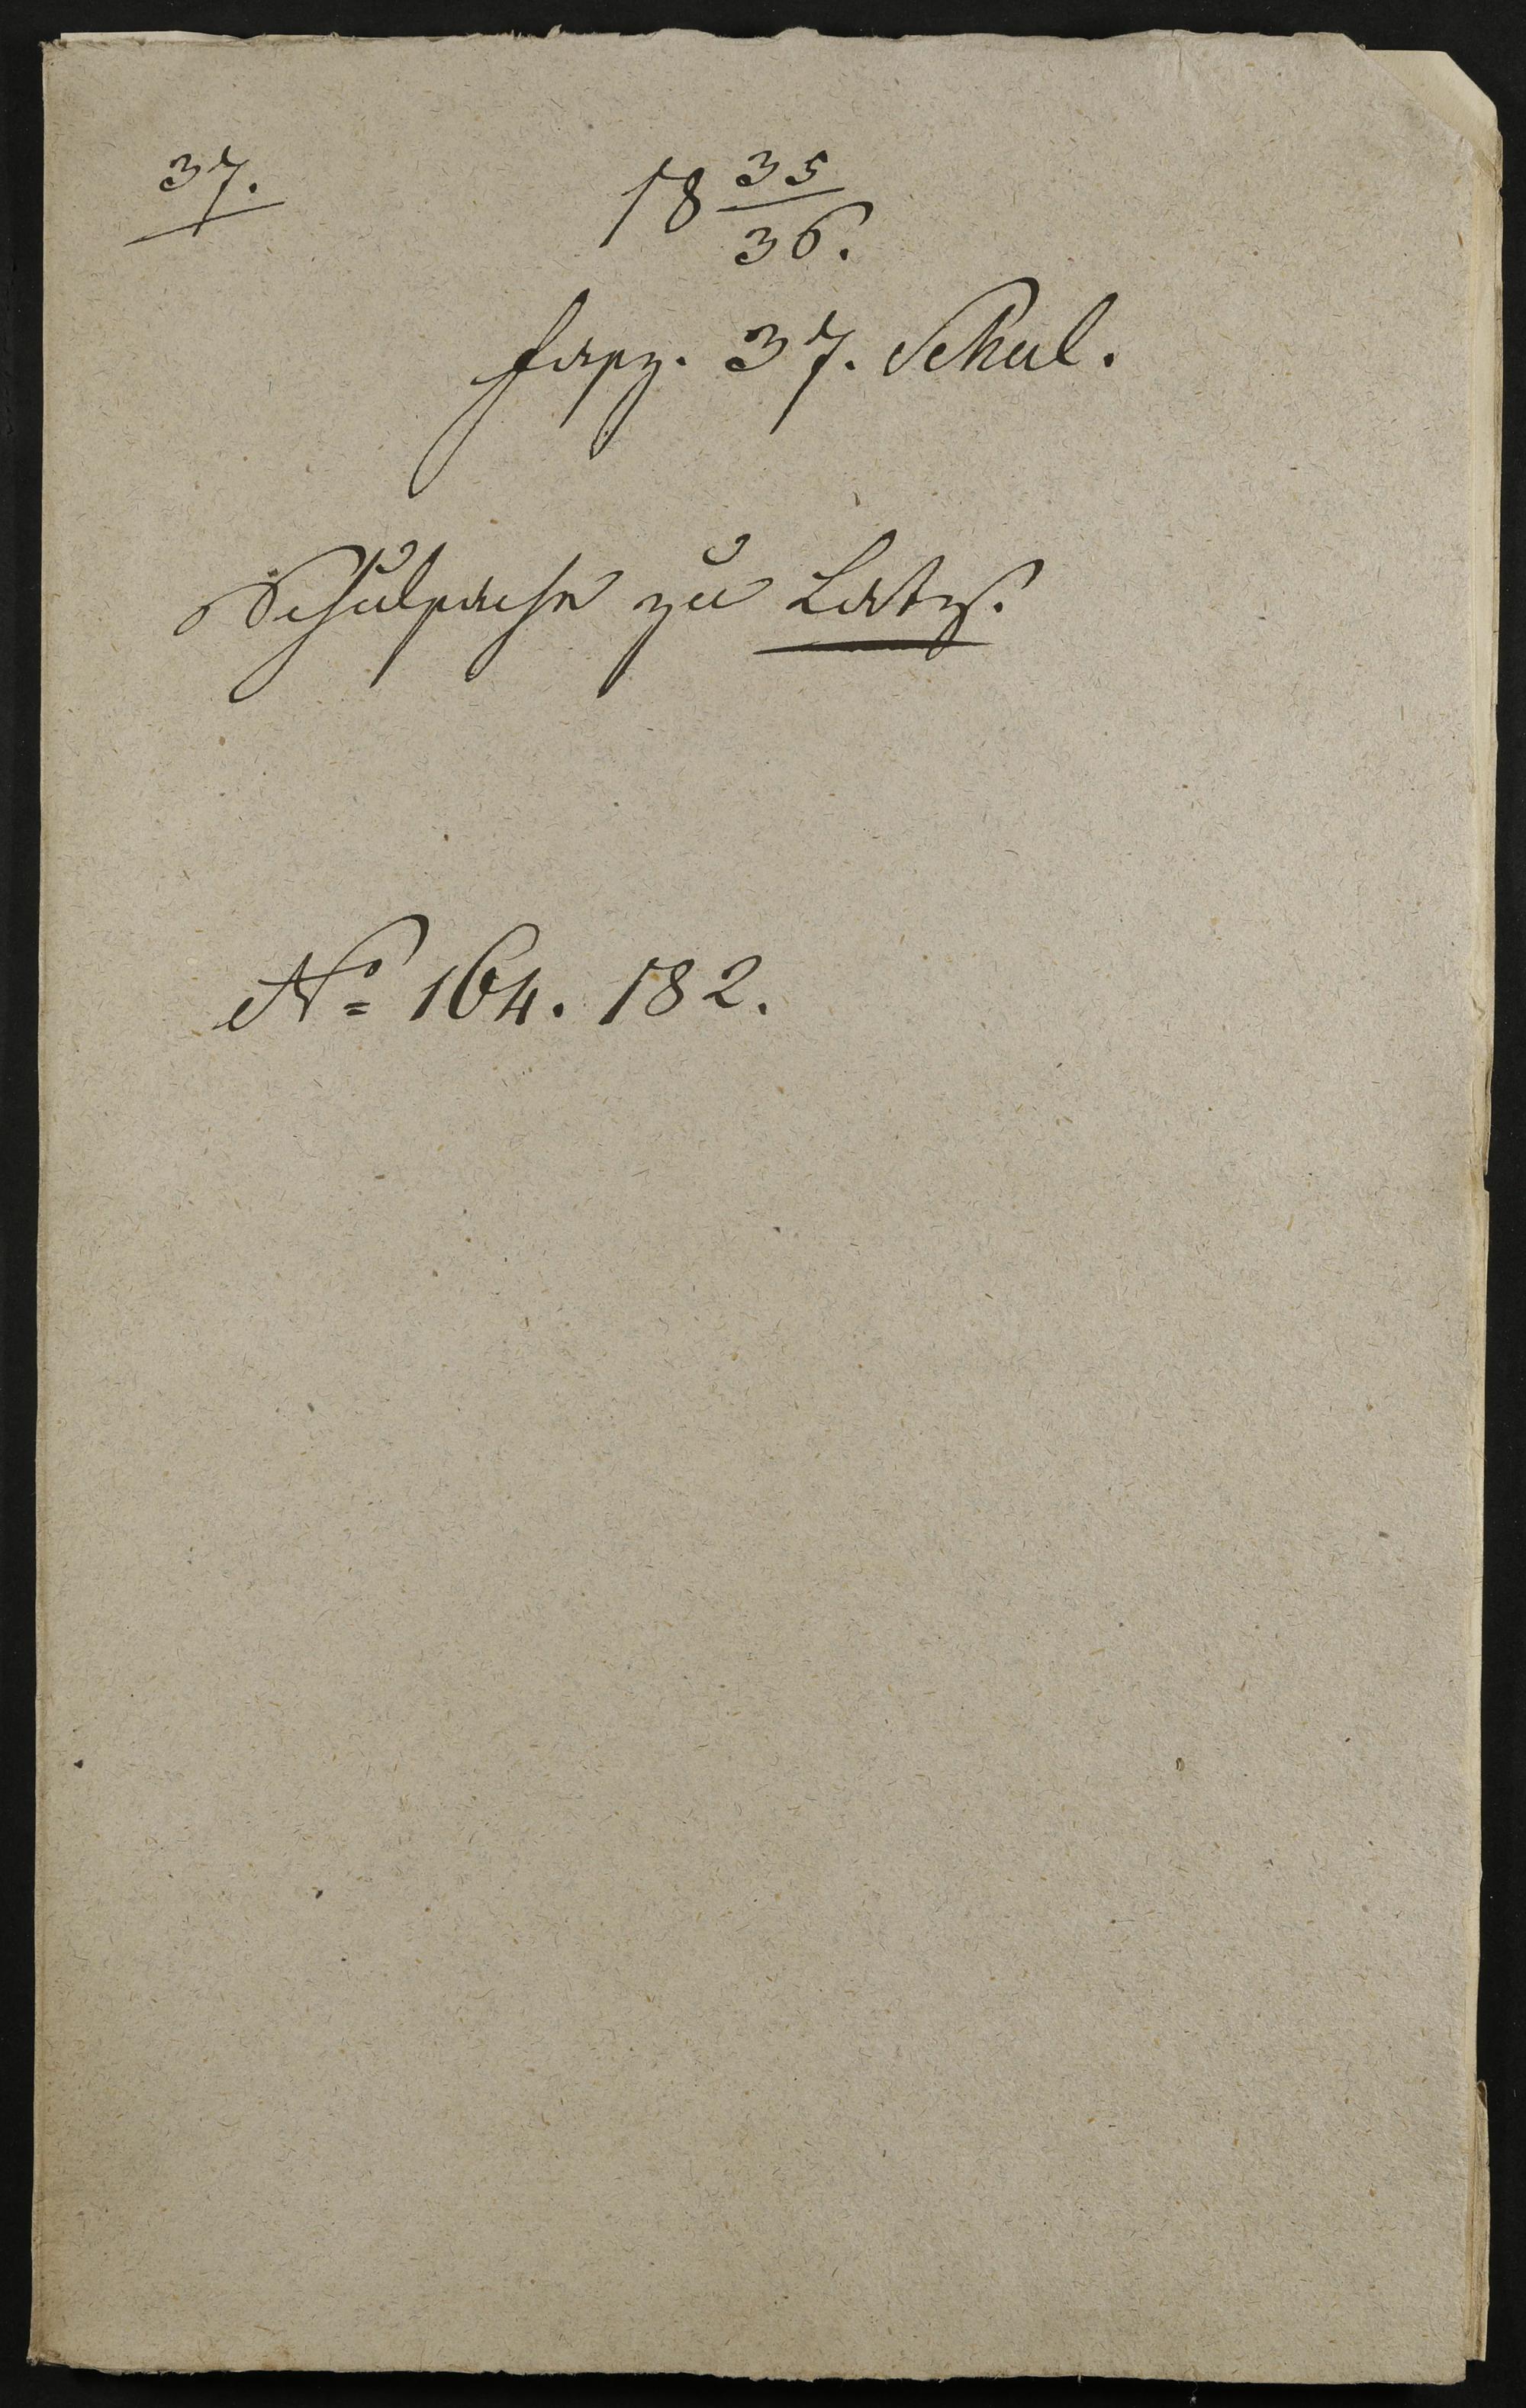 37.
18 35/36.
fasz. 37. Schul.
Schulsache zu Latz.
No 164. 182.